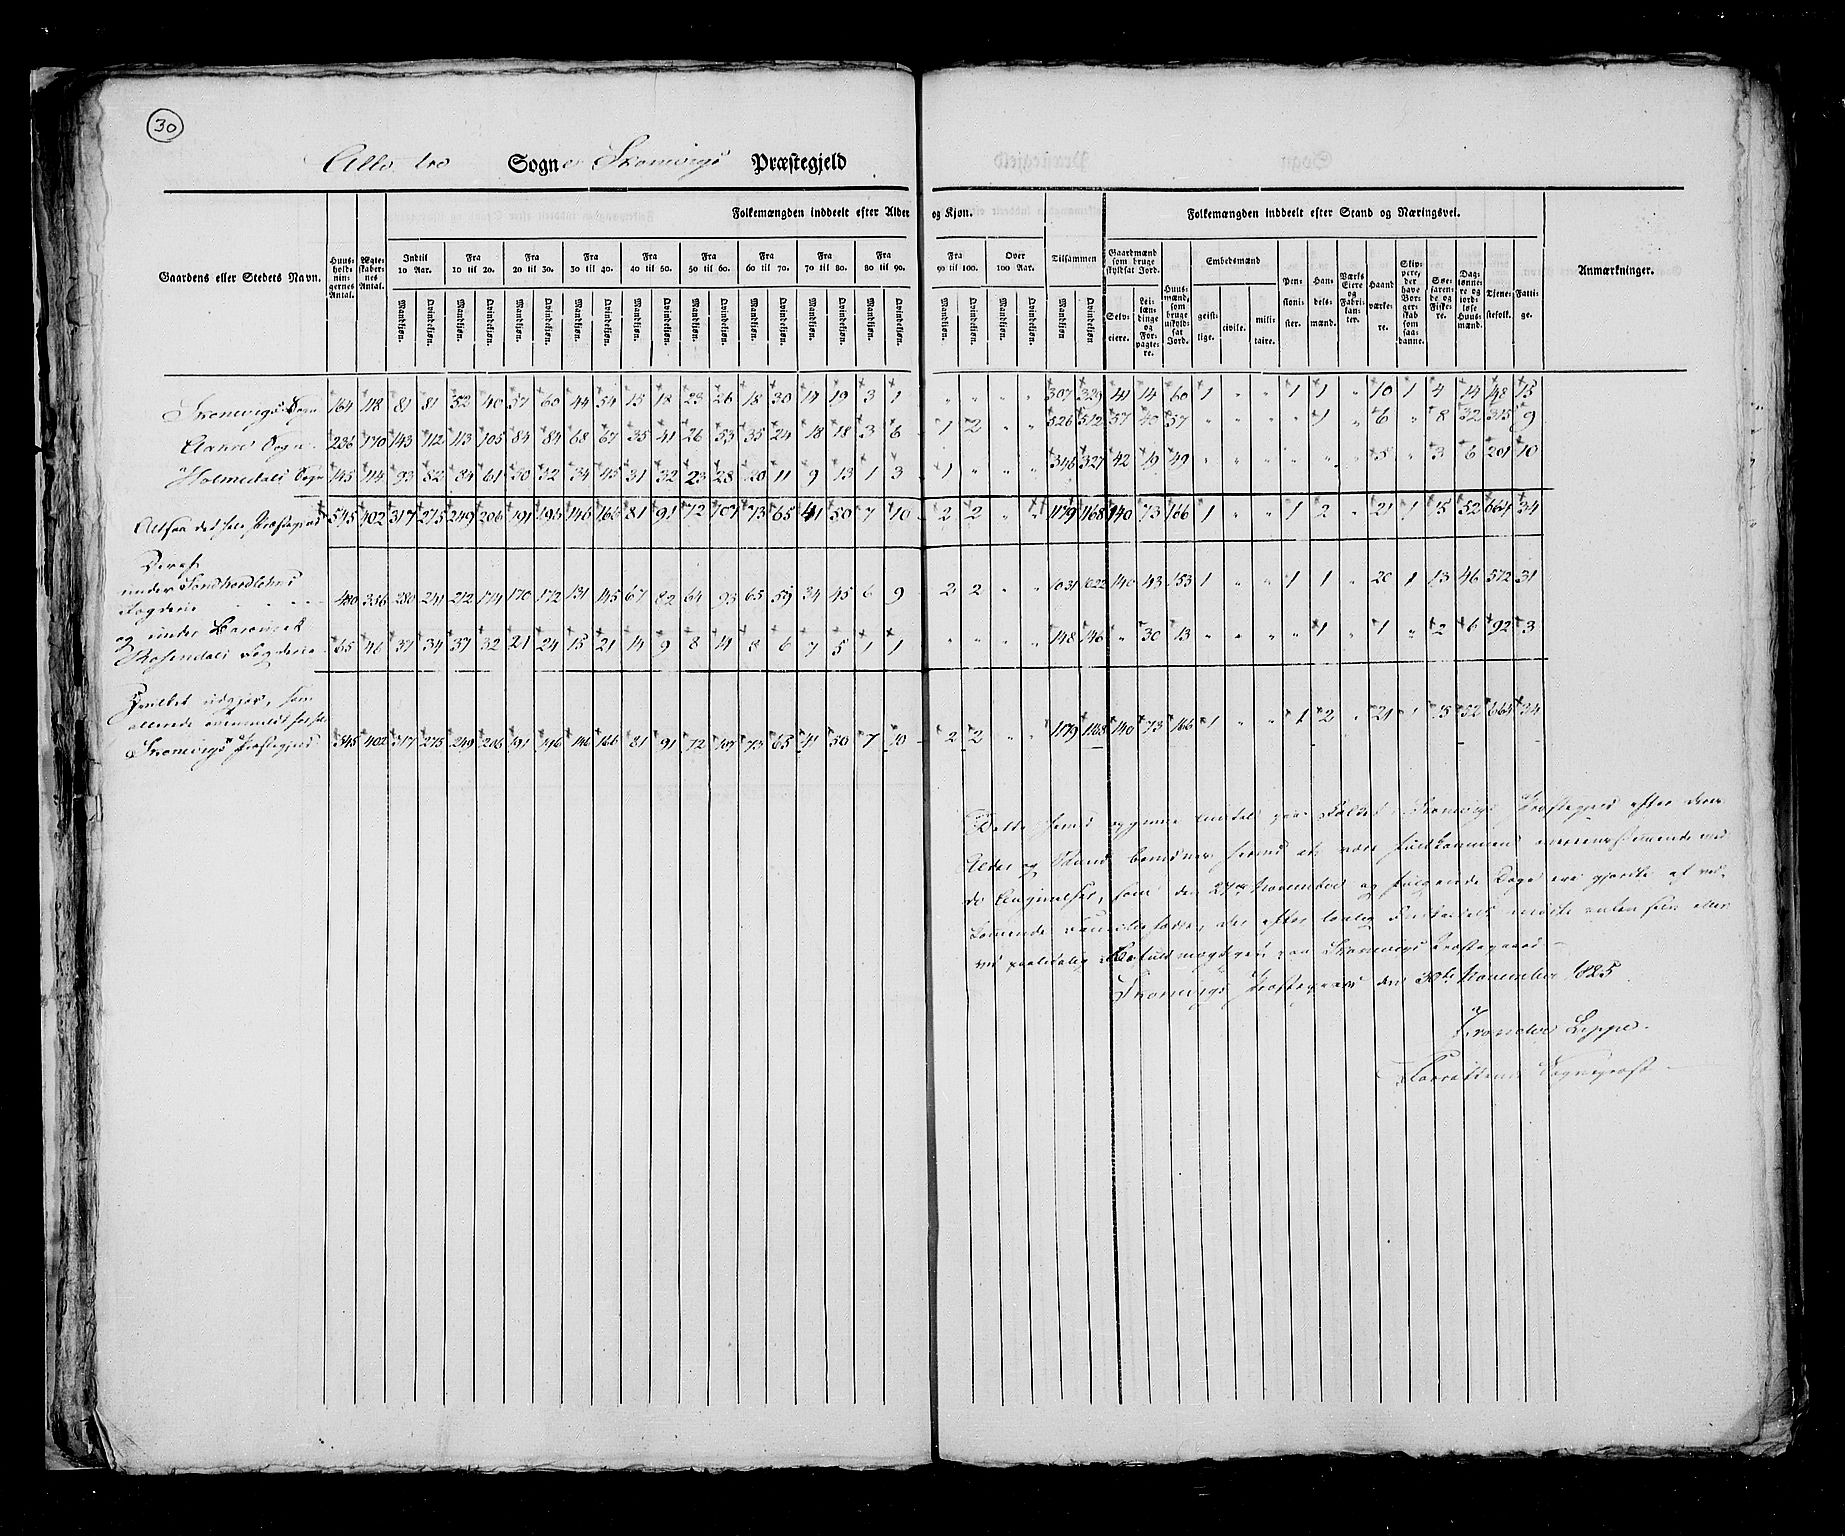 30
Alle tre Sogne Skonevigs Præstegjeld
Folkemængden inddeelt efter Alder og Kjøn. Folkemængden inddeelt efter Stand og Næringsvei.
Gaardens eller Stedets Navn. Huusholdningernes Antal. Ægteskabernes Antal. Indtil 10 Aar. Fra 10 til 20. Fra 20 til 30. Fra 30 til 40. Fra 40 til 50. Fra 50 til 60. Fra 60 til 70. Fra 70 til 80. Fra 80 til 90. Fra 90 til 100. Over 100 Aar. Tilsammen Gaardmænd som bruge skyldsat Jord. Huusmænd, som bruge uskyldsat Jord. Embedsmænd Pensionister. Handelsmænd. Værks Eiere og Fabrikanter. Haandværkere. Skippere, der have Borgerskab som saadanne. Søefarende og Fiskere. Daglønnere og jordløse Huusmænd. Tjenestefolk. Fattige. Anmærkninger.
Mandkjøn. Qvindekjøn. Mandkjøn. Qvindekjøn. Mandkjøn. Qvindekjøn. Mandkjøn. Qvindekjøn. Mandkjøn. Qvindekjøn. Mandkjøn. Qvindekjøn. Mandkjøn. Qvindekjøn. Mandkjøn. Qvindekjøn. Mandkjøn. Qvindekjøn. Mandkjøn. Qvindekjøn. Mandkjøn. Qvindekjøn. Mandkjøn Qvindekjøn Selveiere. Leilændinge og Forpagtere. geistlige. civile. militaire.
Skonevigs Sogn 164 118 81 81 52 40 57 60 44 54 15 18 23 26 18 30 14 19 3 1 " " " " 307 329 41 14 60 1 " " 1 1 " 10 1 4 14 148 15
Sogn 236 170 143 112 113 105 84 84 68 67 35 41 26 53 35 24 18 18 3 6 1 2 " " 526 512 57 40 57 " " " " 1 " 6 " 8 32 315 9
Holmedals Sogn 145 114 93 82 84 61 50 52 34 45 31 32 23 28 20 11 9 13 1 3 1 " " " 346 327 42 19 49 " " " " " " 5 " 3 6 201 10
Altsaa det hele Præstegjeld 545 402 317 275 249 206 191 196 146 166 81 91 72 107 73 65 41 50 7 10 2 2 " " 1179 1168 140 73 166 1 " " 1 2 " 21 1 15 52 664 34
Deraf
under Søndhordlehns
Fogderie 480 356 280 241 212 174 170 172 131 145 67 82 64 93 65 59 34 45 6 9 2 2 " " 1031 1022 140 43 153 1 " " 1 1 " 20 1 13 46 572 31
og under Baroniet
Rosendals Fogderie 65 46 37 34 37 32 21 24 15 21 14 9 8 14 8 6 7 5 1 1 " " " " 148 146 " 30 13 " " " " 1 " 1 " 2 6 92 3
Hvilket udgjør, som
allerede anmeldt for hele
Skonevigs Præstegjeld 545 402 317 275 249 206 191 196 146 166 81 91 72 107 73 65 41 50 7 10 2 2 " " 1179 1168 140 73 166 1 " " 1 2 " 21 1 15 52 664 34
Dette Skonevigs Præstegjeld efter deres
Alder og Stand at være fuldkommen overeensstemmende med
de Angivelser, som den 27de November og følgende Dage ere gjorte af ved-
kommende der efter lovlig
Skonevigs Præstegaard
Skonevigs Præstegaard den 30te November 1825.
Sognepræst